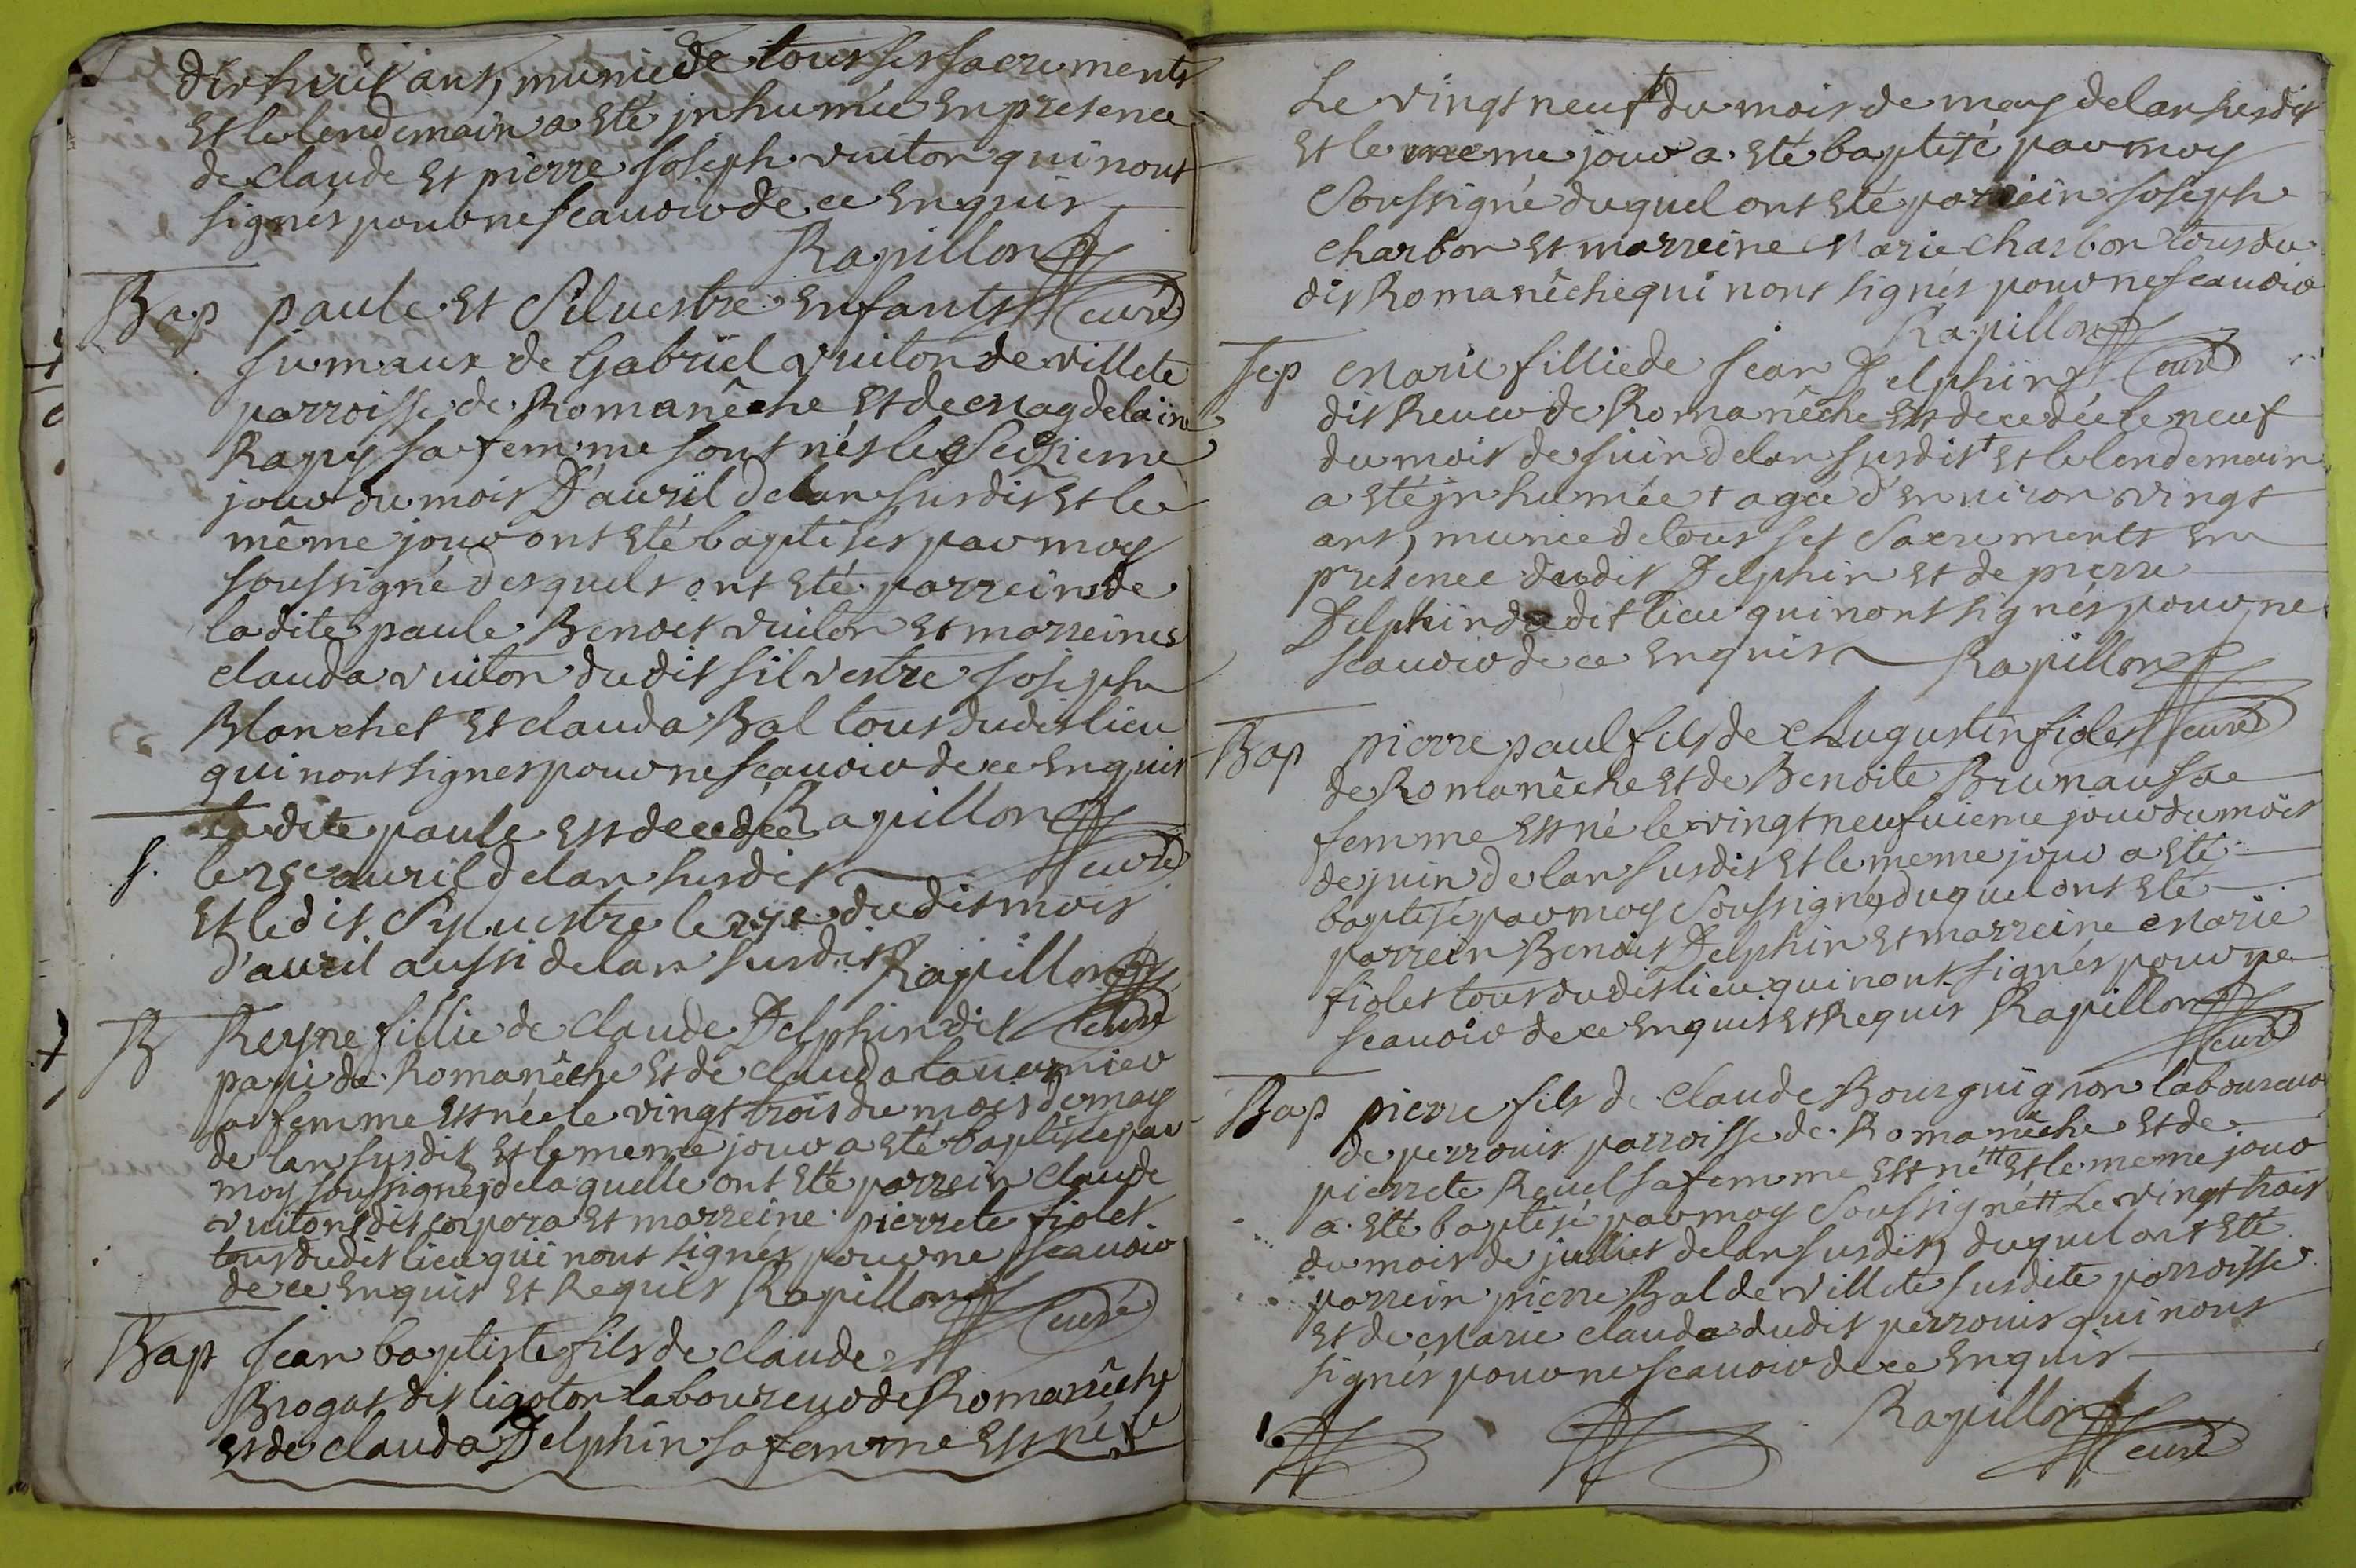 dixhuit ans, munie de tous ses sacrements
et le lendemain a eté jnhumée en presence
de claude et pierre joseph vuiton qui nont
signés pour ne scauoir de ce enquis
Rapillon
curé
Bap paule et Siluestre enfants
jumaux de Gabriel vuiton de villete
parroisse de Romanêche et de magdelaine
Rapy sa femme sont nés le seizieme
jour du mois D'auril de lan susdit et le
même jour ont eté baptisés par moy
soussigné desquels ont eté parrein de
ladite paule Benoit vuiton et marreines
clauda vuiton dudit silvestre joseph
Blanchet et clauda Bal tous dudit lieu
qui nont signes pour ne scauoir de ce enquis
Rapillon
curé
la dite paule est decedée
S. le 25e auril de lan susdit
et le dit Syluestre le 27e dudit mois
d'auril aussi de lan susdit Rapillon
curé
B Reyne fillie de claude Delphin dit
papi de Romanêche et de clauda tauernier
sa femme est née le vingt trois du mois de may
de lan susdit et le meme jour a eté baptisée par
moy soussigné, de laquelle ont eté parrein claude
vuiton dit corpora et marreine pierrete fiolet
tous dudit lieu qui nont signés pour ne scauoir
de ce enquis et Requis Rapillon
curé
Bap jean baptiste fils de claude
Brogat dit ligoton laboureur de Romanêche
et de clauda Delphin sa femme est né le
Le vingt neuf du mois de may de lan susdit
et le meme jour a eté baptisé par moy
Soussigné duquel ont eté parrein joseph
charbon et marreine Marie charbon tous du
dit Romanêche qui nont signés pour ne scauoir
Rapillon
curé
Sep Marie fillie de jean Delphin
dit Reuir de Romanêche est decedée le neuf
du mois de juin de lan susdit et le lendemain
a eté jnhumée agée d'enuiron vingt
ans, munie de tous ses Sacrements en
presence dudit Delphin et de pierre
Delphin dudit lieu qui nont signés pour ne
scauoir de ce enquis Rapillon
curé
Bap pierre paul fils de Augustin fiolet
de Romanêche et de Benoite Brunau sa
femme est né le vingt neufuieme jour du mois
de juin de lan susdit et le meme jour a eté
baptisé par moy Soussigné, duquel ont eté
parrein Benoit Delphin et marreine Marie
fiolet tous dudit lieu qui nont signés pour ne
scauoir de ce enquis et Requis Rapillon
curé
Bap pierre fils de claude Bourguignon laboureur
de perrouis parroisse de Romanêche et de
pierrete Reuel sa femme est né et le meme jour
a eté baptisé par moy Soussigné Le vingt trois
du mois de julliet de lan susdit, duquel ont eté
parrein pierre Bal de villete susdite parroisse
et de Marie clauda dudit perrouis qui nont
signés pour ne scauoir de ce enquis
Rapillon
curé